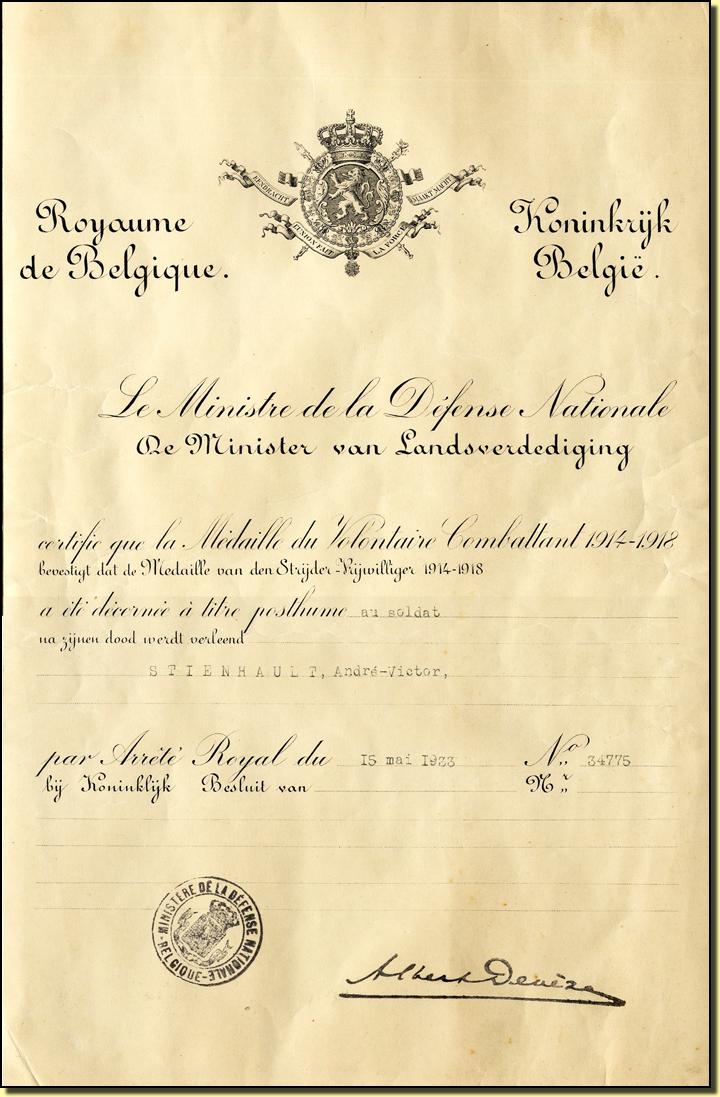 EENDRACHT MAAKT MACHT
L'UNION FAIT LA FORCE
Royaume
de Belgique.
Koninkrijk
België.
Le Ministre de la Défense Nationale
De Minister van Landsverdediging
certifie que la Médaille du Volontaire Combattant 1914-1918
bevestigt dat de Medaille van den Strijder-Vrijwilliger 1914-1918
a été décernée à titre posthume au soldat
na zijnen dood werdt verleend
STIENHAULT, André-Victor,
par Arrêté Royal du 15 mai 1933 No 34775
bij Koninklijk Besluit van Nr
MINISTÈRE DE LA DÉFENSE NATIONALE
BELGIQUE
Albert Devèze